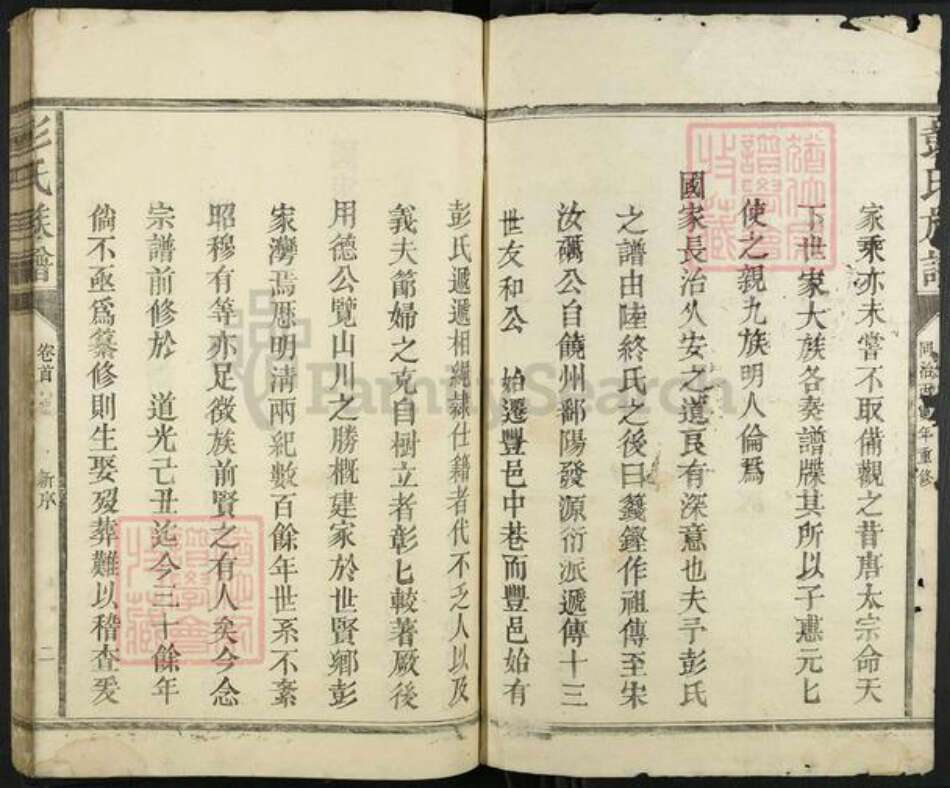 彭氏族譜
同治
年重修
家乘亦未嘗不取備觀之昔唐太宗命天
下世家大族各奏譜牒其所以子惠元匕
使之親九族明人倫爲
國家長治久安之道良有深意也夫予彭氏
之譜由陸終氏之後曰籛鏗作祖傳至宋
汝礪公自饒州鄱陽發源衍派遞傳十三
世友和公 始遷豐邑中巷而豐邑始有
彭氏遞遞相繩隷仕籍者代不乏人以及
義夫節婦之克自樹立者彰匕較著厥後
用德公覽山川之勝概建家於世賢鄉彭
家灣焉歷明清兩紀數百餘年世系不紊
昭穆有等亦足徵族前賢之有人矣今念
宗譜前修於 道光己丑迄今三十餘年
倘不亟爲纂修則生娶歿葬難以稽查爰
彭氏族譜
卷首
新序
二
FamilySearch